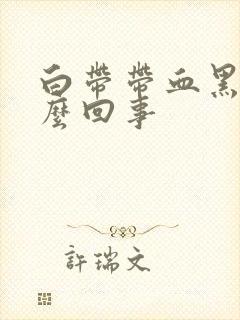 白帶帶血黑
麼回事
許瑞文